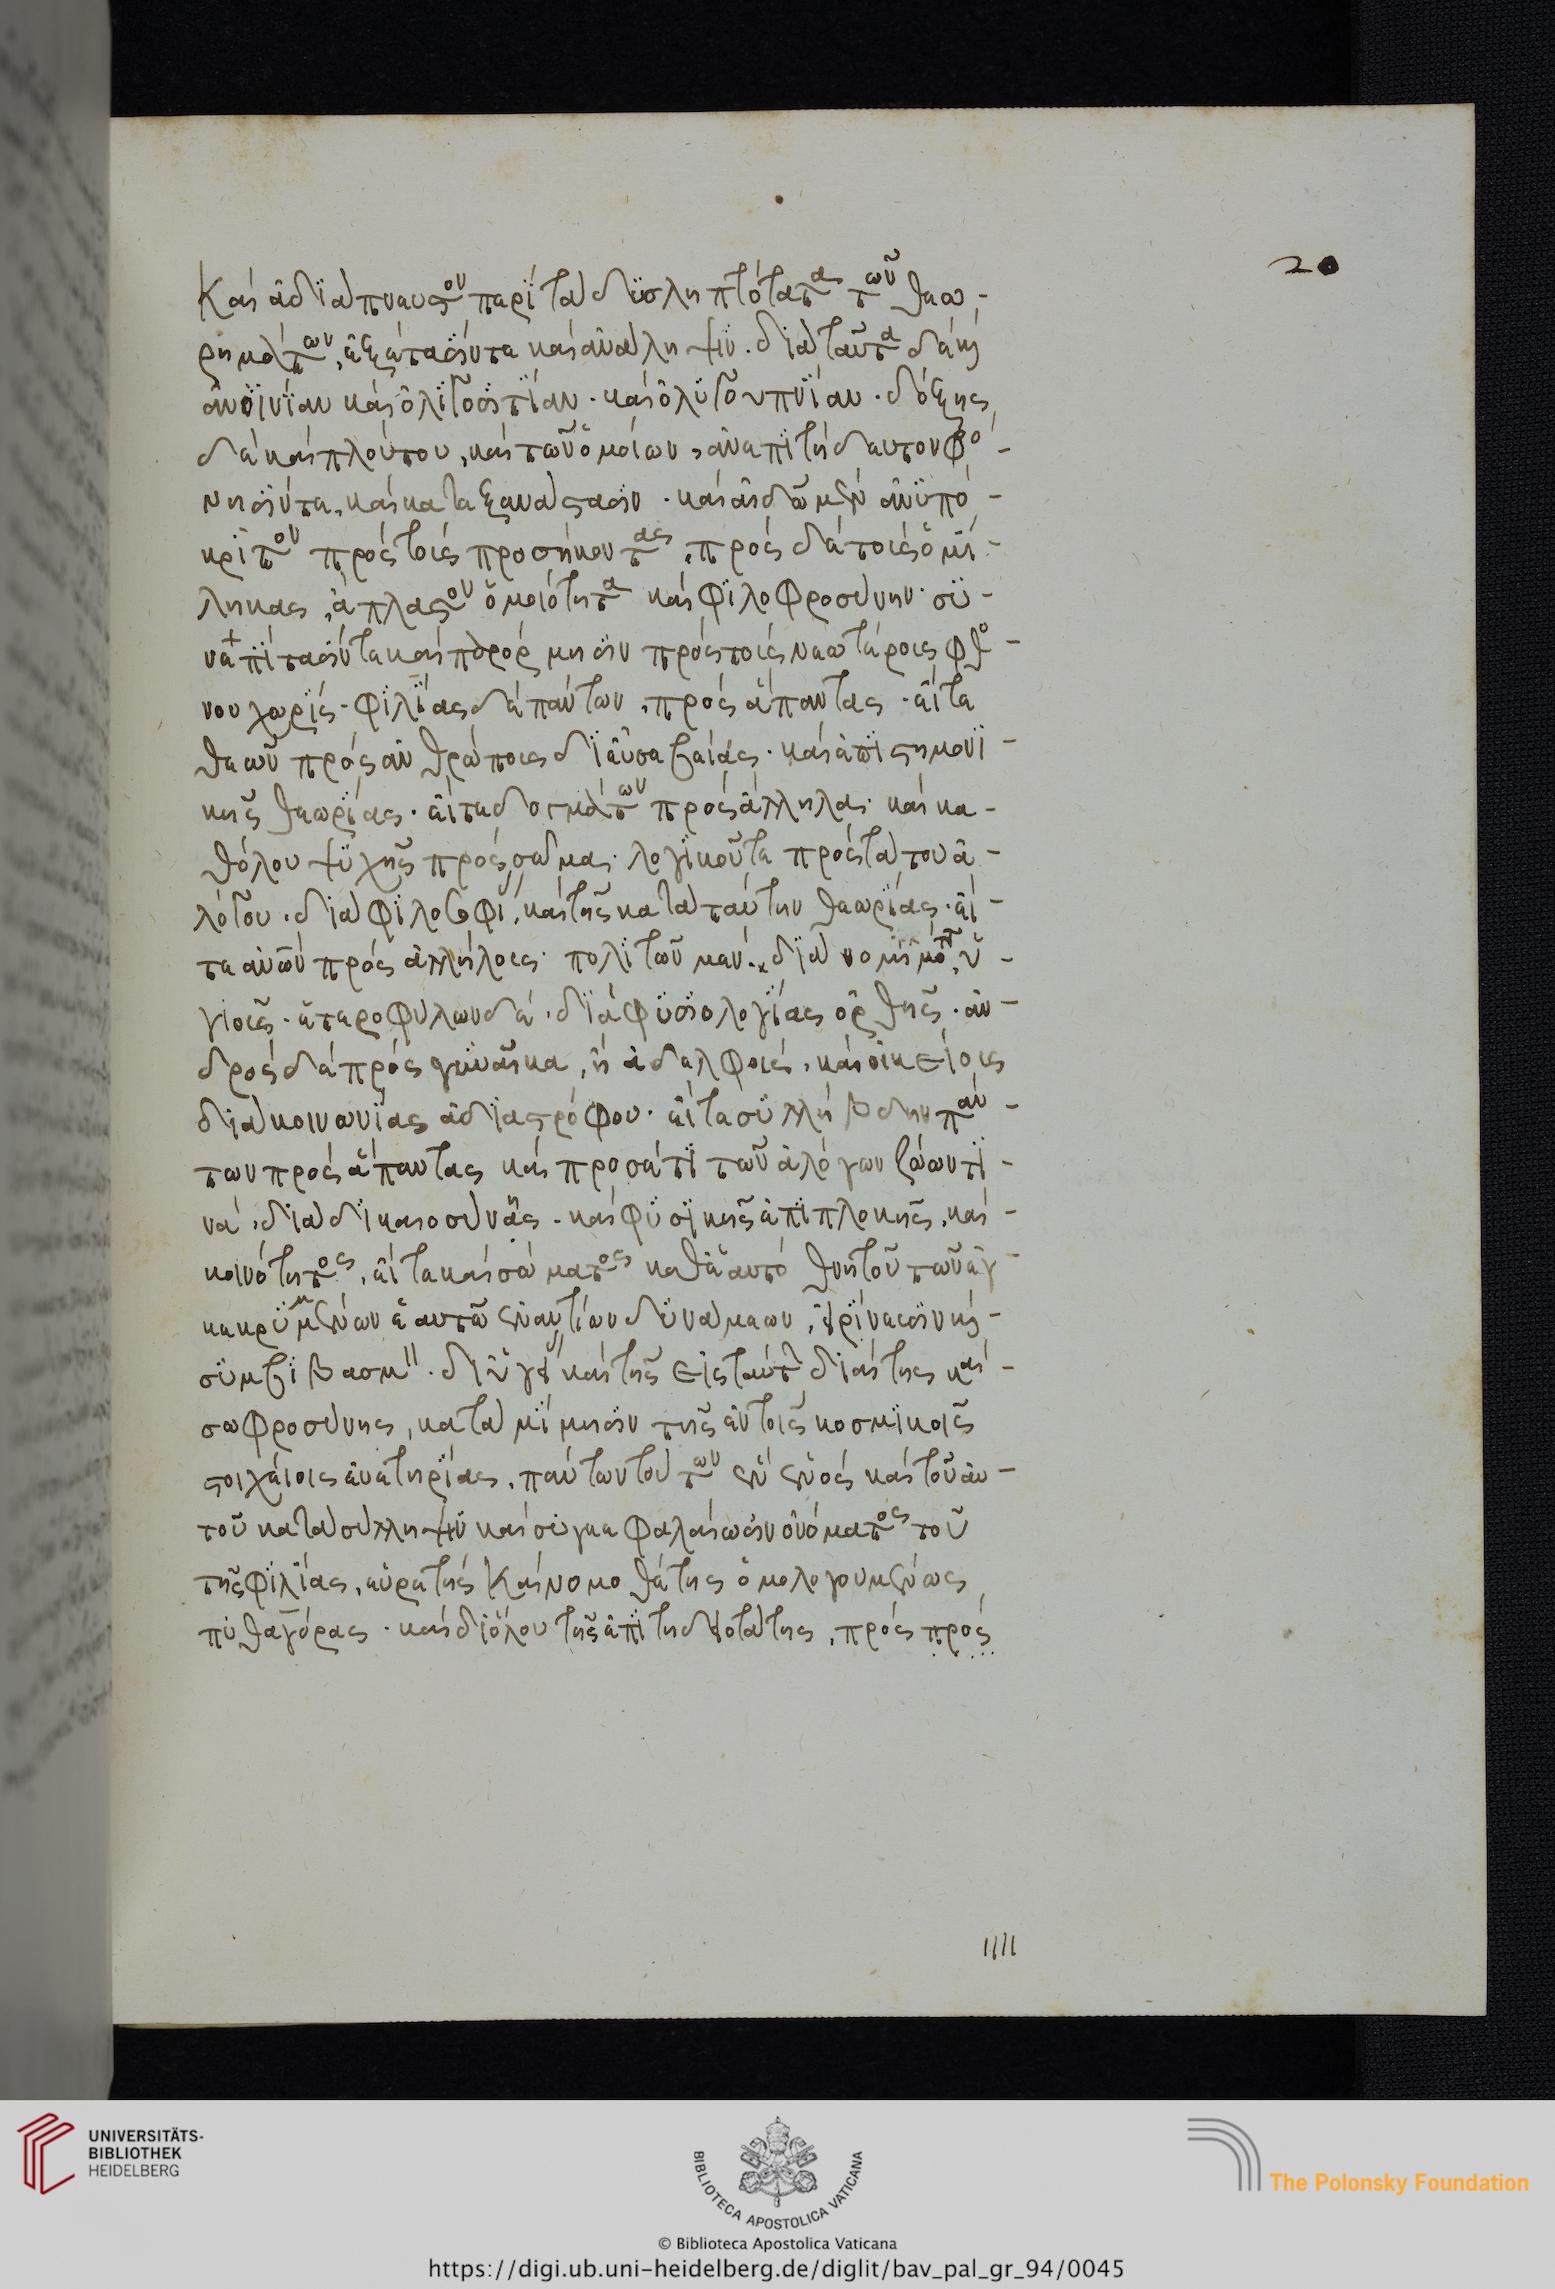 20
Καὶ ἀδιάπνευστον περὶ τὰ δυσληπτότατα τῶν θεω-
ρημάτων, ἐξέτασίν τε καὶ ἀνάληψιν. διὰ ταῦτα δὲ καὶ
ἀνοινίαν καὶ ὀλιγοσιτίαν. καὶ ὀλιγοϋπνίαν. δόξης
δὲ καὶ πλούτου, καὶ τῶν ὁμοίων, ἀνεπιτήδευτον φρό-
νησίν τε, καὶ κατεξανάστασιν. καὶ αἰδῶ μὲν ἀνυπό-
κριτον πρὸς τοὺς προσήκοντας, πρὸς δὲ τοὺς ὁμή-
λικας, ἄπλαστον ὁμοιότητα καὶ φιλοφροσύνην. συ-
νεπίτασίν τε καὶ παρόρμησιν πρὸς τοὺς νεωτέρους φθό-
νου χωρίς. φιλίας δὲ πάντων, πρὸς ἅπαντας. εἴτε
θεῶν πρὸς ἀνθρώπους δι' εὐσεβείας. καὶ ἐπιστημονι-
κῆς θεωρίας. εἴτε δογμάτων πρὸς ἄλληλα. καὶ κα-
θόλου ψυχῆς πρὸς σῶμα. λογικοῦ τε πρὸς τὰ τοῦ ἀ-
λόγου. διὰ φιλοσοφίας, καὶ τῆς κατὰ ταύτην θεωρίας. εἴ-
τε ἀνῶν πρὸς ἀλλήλους. πολιτῶν μὲν. διὰ νομιμότητος ὑ-
γιοῦς. ἑτεροφύλων δὲ. διὰ φυσιολογίας ὀρθῆς. ἀν-
δρὸς δὲ πρὸς γυναῖκα, ἢ ἀδελφοὺς, καὶ οἰκείους
διὰ κοινωνίας ἀδιαστρόφου. εἴτε συλλήβδην πάν-
των πρὸς ἅπαντας καὶ προσέτι τῶν ἀλόγων ζώων τι-
νά. διὰ δικαιοσύνης. καὶ φυσικῆς ἐπιπλοκῆς, καὶ
κοινότητος, εἴτε καὶ σώματος καθ' ἑαυτὸ θνητοῦ τῶν ἐγ-
κεκρυμμένων ἑαυτῶ ἐναντίων δυνάμεων, εἰρήνευσίν καὶ
συμβιβασμὸν. δι' ὑγείας καὶ τῆς εἰς ταύτην διαίτης καὶ
σωφροσύνης, κατὰ μίμησιν τῆς ἐν τοῖς κοσμικοῖς
στοιχείοις εὐετηρίας. πάντων τούτων ἓν ἑνὸς καὶ τοῦ αὐ-
τοῦ κατὰ σύλληψιν καὶ συγκεφαλαίωσιν ὀνόματος τοῦ
τῆς φιλίας, εὑρετὴς Καὶ νομοθέτης ὁμολογουμένως
πυθαγόρας. καὶ δι' ὅλου τῆς ἐπιτηδειοτάτης, πρὸς πρὸς
UNIVERSITÄTS-
BIBLIOTHEK
HEIDELBERG
BIBLIOTECA APOSTOLICA VATICANA
The Polonsky Foundation
© Biblioteca Apostolica Vaticana
https://digi.ub.uni-heidelberg.de/diglit/bav_pal_gr_94/0045